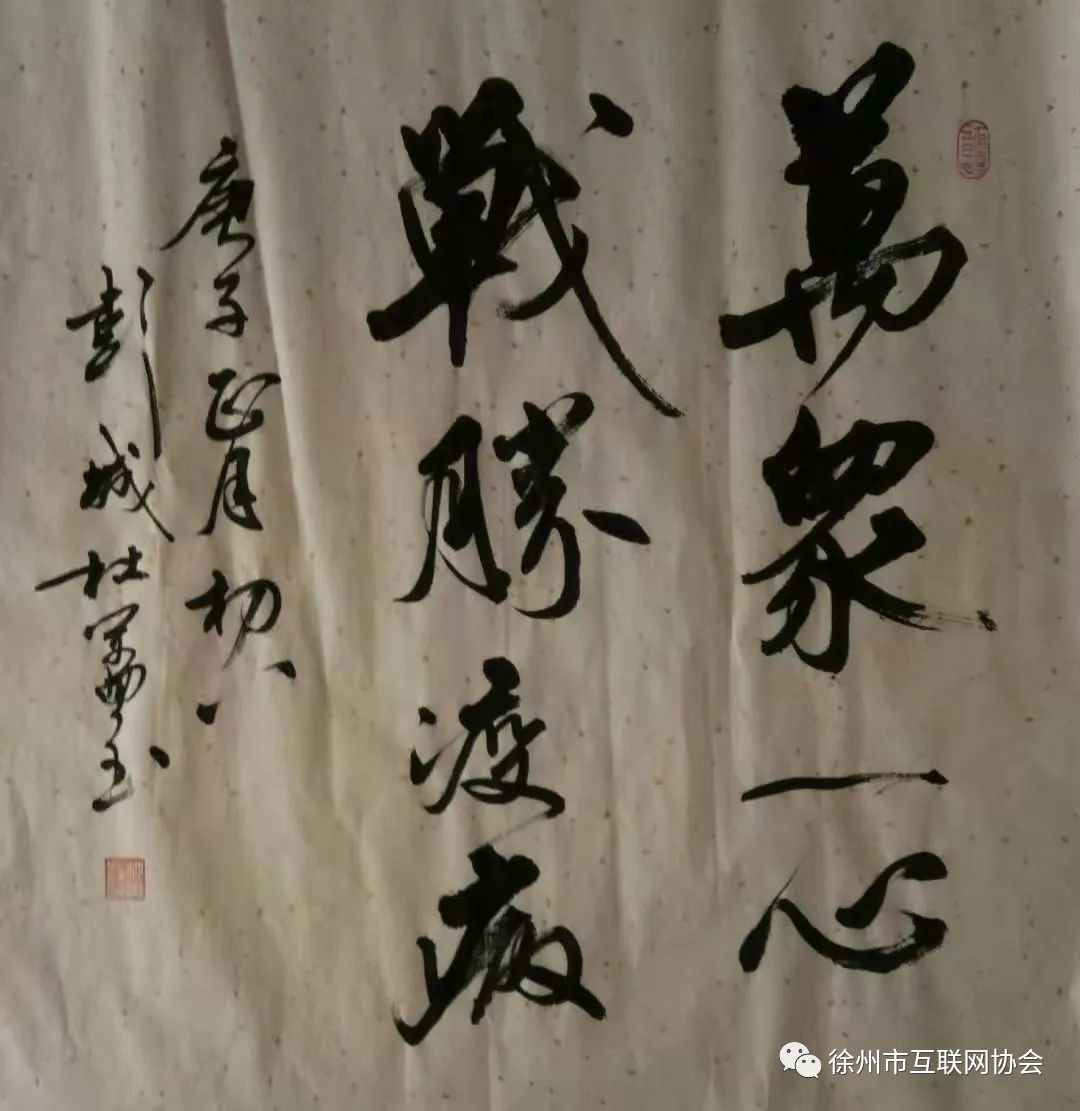 萬衆一心
戰勝疫病
庚子正月初八
彭城杜
徐州市互联网协会